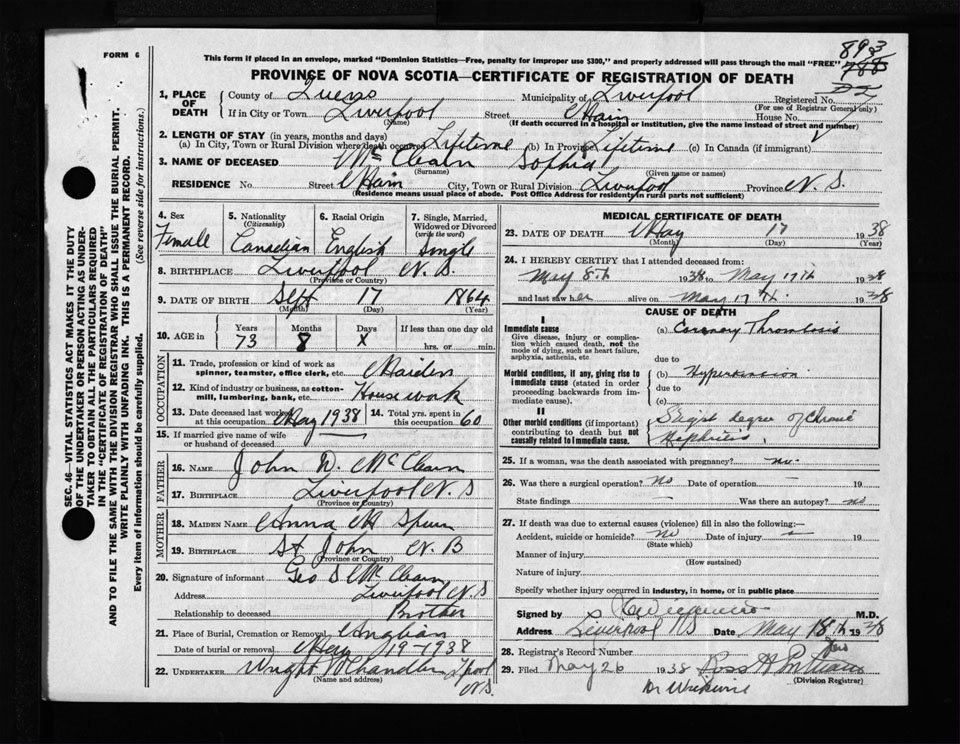 FORM 6
This form if placed in an envelope, marked "Dominion Statistics—Free, penalty for improper use $300," and properly addressed will pass through the mail "FREE"
893
788
PROVINCE OF NOVA SCOTIA—CERTIFICATE OF REGISTRATION OF DEATH
1. PLACE OF DEATH
County of Queens Municipality of Liverpool Registered No.
(For use of Registrar General only)
If in City or Town Liverpool Street Main House No.
(Name) (If death occurred in a hospital or institution, give the name instead of street and number)
2. LENGTH OF STAY (in years, months and days)
(a) In City, Town or Rural Division where death occurred Lifetime (b) In Province Lifetime (c) In Canada (if immigrant)
3. NAME OF DECEASED McClearn Sophia
(Surname) (Given name or names)
RESIDENCE No. Street Main City, Town or Rural Division Liverpool Province N. S.
(Residence means usual place of abode. Post Office Address for residents in rural parts not sufficient)
4. Sex Female
5. Nationality (Citizenship) Canadian
6. Racial Origin English
7. Single, Married, Widowed or Divorced (write the word) Single
8. BIRTHPLACE Liverpool N. S.
(Province or Country)
9. DATE OF BIRTH Sept 17 1864
(Month) (Day) (Year)
10. AGE in Years 73 Months 8 Days x If less than one day old hrs. or min.
OCCUPATION
11. Trade, profession or kind of work as spinner, teamster, office clerk, etc. Maiden
12. Kind of industry or business, as cotton-mill, lumbering, bank, etc. Housework
13. Date deceased last worked at this occupation May 1938 14. Total yrs. spent in this occupation 60
15. If married give name of wife or husband of deceased
FATHER
16. NAME John W. McClearn
17. BIRTHPLACE Liverpool N. S
(Province or Country)
MOTHER
18. MAIDEN NAME Anna M
19. BIRTHPLACE St John N. B
(Province or Country)
20. Signature of informant Geo S McClearn
Address Liverpool N. S
Relationship to deceased Brother
21. Place of Burial, Cremation or Removal Anglican
Date of burial or removal May 19-1938
22. UNDERTAKER Wright Chandler L'pool N. S.
(Name and address)
MEDICAL CERTIFICATE OF DEATH
23. DATE OF DEATH May 17 1938
(Month) (Day) (Year)
24. I HEREBY CERTIFY that I attended deceased from:
May 8th 1938 to May 17th 1938
and last saw her alive on May 17th 1938
CAUSE OF DEATH
I
Immediate cause
Give disease, injury or complication which caused death, not the mode of dying, such as heart failure, asphyxia, asthenia, etc
(a) Coronary Thrombosis
due to
Morbid conditions, if any, giving rise to immediate cause (stated in order proceeding backwards from immediate cause).
(b) Hypertension
due to
(c)
II
Other morbid conditions (if important) contributing to death but not causally related to immediate cause.
Slight degree of Chronic
Nephritis.
25. If a woman, was the death associated with pregnancy? no.
26. Was there a surgical operation? No Date of operation — 19
State findings — Was there an autopsy? no
27. If death was due to external causes (violence) fill in also the following:—
Accident, suicide or homicide? no Date of injury 19
(State which)
Manner of injury
(How sustained)
Nature of injury
Specify whether injury occurred in industry, in home, or in public place
Signed by M.D.
Address Liverpool NS Date May 18th 1938
28. Registrar's Record Number
29. Filed May 26 1938 Ross
(Division Registrar)
SEC. 46—VITAL STATISTICS ACT MAKES IT THE DUTY
OF THE UNDERTAKER OR PERSON ACTING AS UNDERTAKER TO OBTAIN ALL THE PARTICULARS REQUIRED
IN THE "CERTIFICATE OF REGISTRATION OF DEATH"
AND TO FILE THE SAME WITH THE DIVISION REGISTRAR WHO SHALL ISSUE THE BURIAL PERMIT.
WRITE PLAINLY WITH UNFADING INK. THIS IS A PERMANENT RECORD.
Every item of information should be carefully supplied. (See reverse side for instructions.)